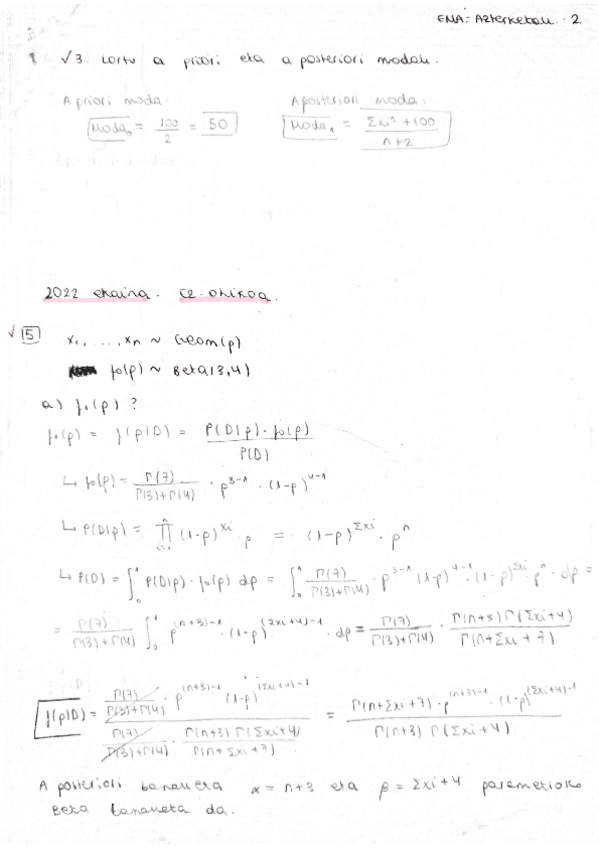 ENA: Azterketak. 2.
√3. Lortu a priori eta a posteriori modak.
A priori moda: A posteriori moda:
Moda₀ = 100/2 = 50 Moda₁ = (Σxi² + 100)/(n+2)
2022 ekaina. Ez-ohikoa.
√ 5 x₁, ..., xₙ ~ Geom(p)
f₀(p) ~ Beta(3,4)
a) f₁(p) ?
f₁(p) = f(p|D) = P(D|p) · f₀(p) / P(D)
↳ f₀(p) = Γ(7)/(Γ(3)+Γ(4)) · p^(3-1) · (1-p)^(4-1)
↳ P(D|p) = ∏_{i=1}^{n} (1-p)^(xi) p = (1-p)^(Σxi) · p^n
↳ P(D) = ∫₀¹ P(D|p) · f₀(p) dp = ∫₀¹ Γ(7)/(Γ(3)+Γ(4)) · p^(3-1) (1-p)^(4-1) · (1-p)^(Σxi) · p^n · dp =
= Γ(7)/(Γ(3)+Γ(4)) ∫₀¹ p^((n+3)-1) · (1-p)^((Σxi+4)-1) · dp = Γ(7)/(Γ(3)+Γ(4)) · Γ(n+3) Γ(Σxi+4)/Γ(n+Σxi+7)
f(p|D) = [Γ(7)/(Γ(3)+Γ(4)) · p^((n+3)-1) (1-p)^((Σxi+4)-1)] / [Γ(7)/(Γ(3)+Γ(4)) · Γ(n+3) Γ(Σxi+4)/Γ(n+Σxi+7)] = Γ(n+Σxi+7) · p^((n+3)-1) · (1-p)^((Σxi+4)-1) / (Γ(n+3) Γ(Σxi+4))
A posteriori banaketa α = n+3 eta β = Σxi+4 parametroko
Beta banaketa da.